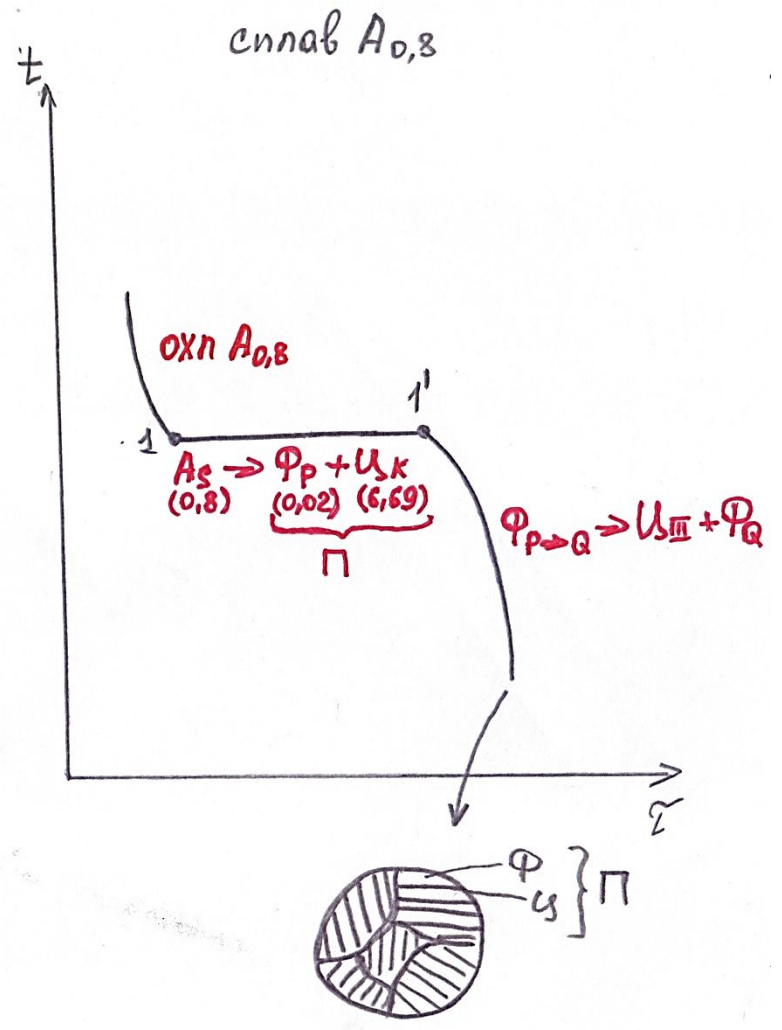 сплав А0,8
t
охл А0,8
1'
1
Аs → Фp + Цк
(0,8) (0,02) (6,69)
П
Фp→Q → ЦIII + ФQ
τ
Ф
Ц
П